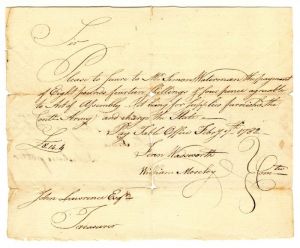 Sir
Please to secure to Mr. Simon Waterman the payment
of Eight pounds fourteen shillings & four pence agreeable
to Act of Assembly, it being for supplies furnished the
Army and charge the State
Pay Table Office Feby 7th 1782
£8.14.4
Fenn Wadsworth
William Moseley
Comtte
John Lawrence Esqr
Treasurer